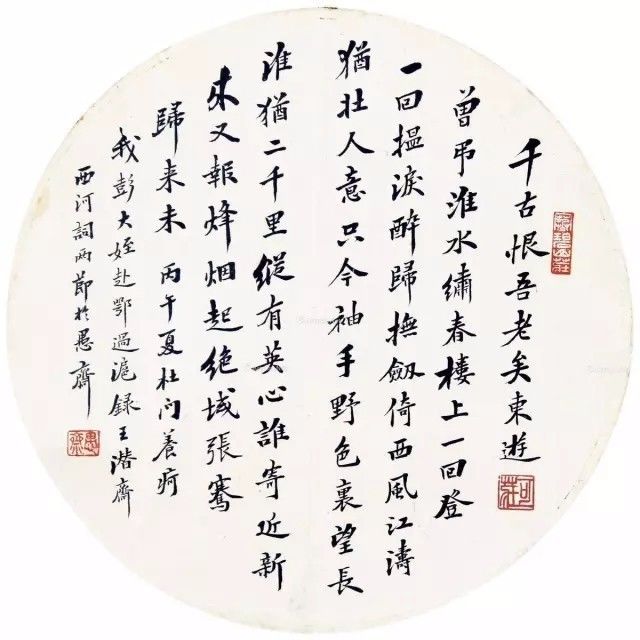 千古恨吾老矣東遊
曾弔淮水繡春樓上一回登
一回搵淚醉歸撫劔倚西風江濤
猶壯人意只今袖手野色裏望長
淮猶二千里縱有英心誰寄近新
来又報烽烟起絶域張騫
歸来未 丙午夏杜门養疴
我彭大姪赴鄂過滬録王潛齋
西河詞兩節於愚齋
可莊
愚齋